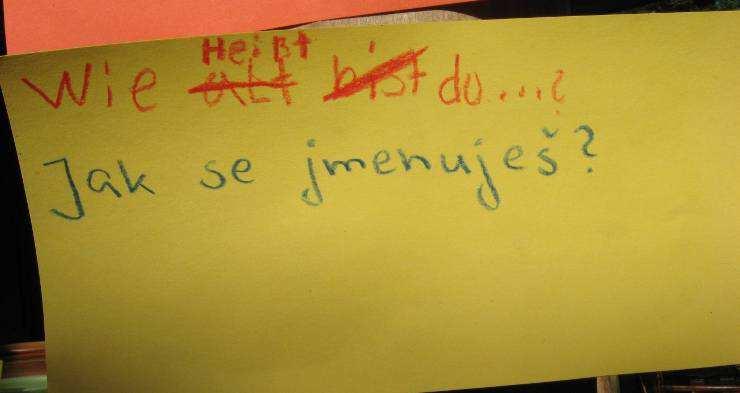 Heißt
Wie alt bist du...?
Jak se jmenuješ?